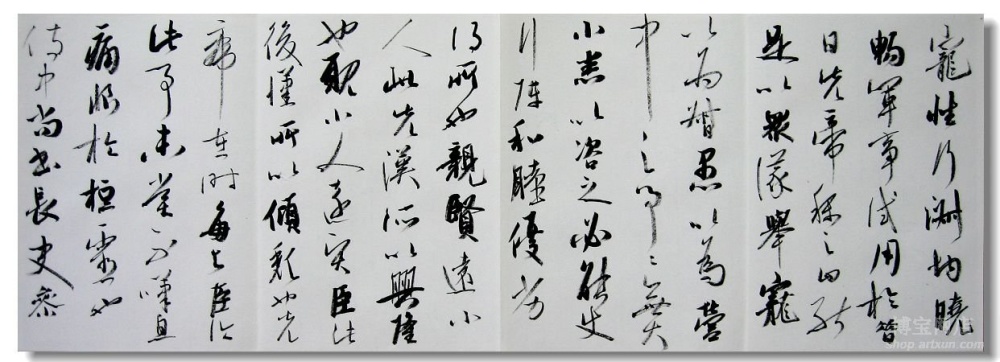 寵性行淑均曉
暢軍事試用於昔
日先帝稱之曰能
是以眾議舉寵
以為督愚以為營
中之事〻無大
小悉以咨之必能使
行陣和睦優劣
得所也親賢遠小
人此先漢所以興隆
也親小人遠賢臣此
後漢所以傾頹也先
帝在時每與臣論
此事未嘗不嘆息
痛恨於桓靈也
侍中尚書長史參
shop.artxun.com